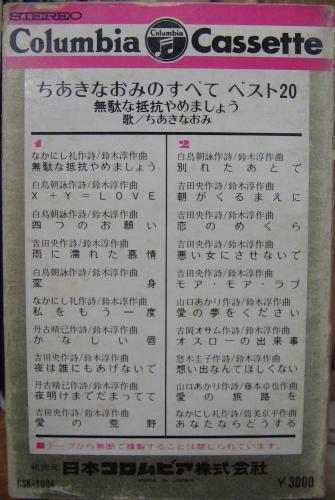 STEREO
Columbia Columbia Cassette
ちあきなおみのすべて ベスト20
無駄な抵抗やめましょう
歌/ちあきなおみ
1
なかにし礼作詩/鈴木淳作曲
無駄な抵抗やめましょう
白鳥朝詠作詩/鈴木淳作曲
X+Y=LOVE
白鳥朝詠作詩/鈴木淳作曲
四つのお願い
吉田央作詩/鈴木淳作曲
雨に濡れた慕情
白鳥朝詠作詩/鈴木淳作曲
変身
なかにし礼作詩/鈴木淳作曲
私をもう一度
丹古晴己作詩/鈴木淳作曲
かなしい唇
吉田央作詩/鈴木淳作曲
夜は誰にもあげないで
丹古晴己作詩/鈴木淳作曲
夜明けまでだまってて
吉田央作詩/鈴木淳作曲
愛の荒野
2
白鳥朝詠作詩/鈴木淳作曲
別れたあとで
吉田央作詩/鈴木淳作曲
朝がくるまえに
吉田央作詩/鈴木淳作曲
恋のめくら
吉田央作詩/鈴木淳作曲
悪い女にさせないで
吉田央作詩/鈴木淳作曲
モア・モア・ラブ
山口あかり作詩/鈴木淳作曲
愛の夢をください
吉岡オサム作詩/鈴木淳作曲
オスローの出来事
悠木圭子作詩/鈴木淳作曲
想い出なんてほしくない
山口あかり作詩/藤本卓也作曲
愛の旅路を
なかにし礼作詩/筒美京平作曲
あなたならどうする
■テープから無断で複製することは禁じられています。
発売元 日本コロムビア株式會社
MADE IN JAPAN
CSK-1004
¥3000